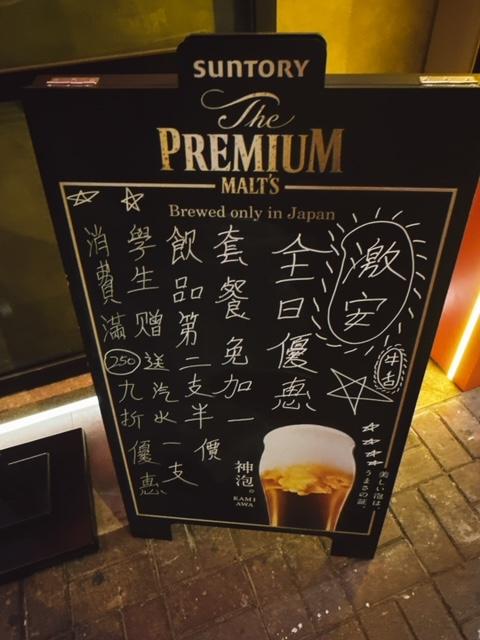 SUNTORY
The
PREMIUM
MALT'S
Brewed only in Japan
激安
牛舌
全日優惠
套餐免加一
飲品第二支半價
學生赠送汽水一支
消費滿250九折優惠
神泡。
KAMI
AWA
美しい泡は、
うまさの証。